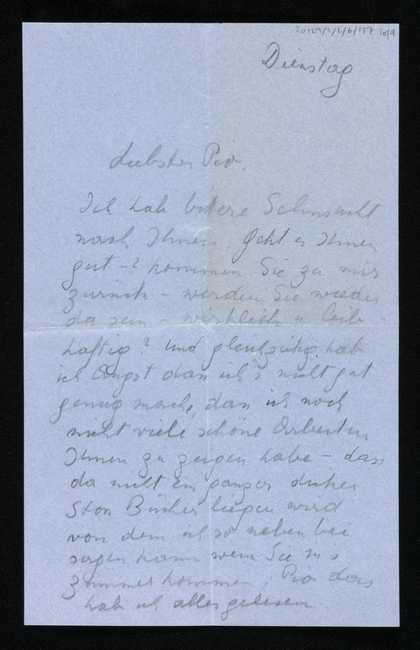 Dienstag
Liebster Pio,
Ich hab bittere Sehnsucht
nach Ihnen, Geht es Ihnen
gut - ? kommen Sie zu mir
zurück - werden Sie wieder
da sein - wirklich u leib-
haftig? Und gleichzeitig hab
ich Angst dass ich's nicht gut
genug mache, dass ich noch
nicht viele schöne Arbeiten
Ihnen zu zeigen habe - dass
da nicht ein ganzer dicker
Bücher liegen wird
von dem ich so neben bei
sagen kann wenn Sie ins
Zimmer kommen, Pio das
hab ich alles gelesen